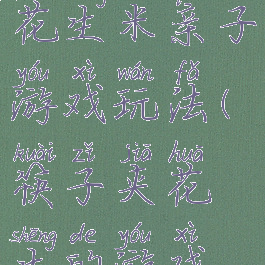 花生米亲子
yóu xì wán fǎ
游戏玩法(
kuài zǐ jiā huā
筷子夹花
shēng de yóu xì
生的游戏